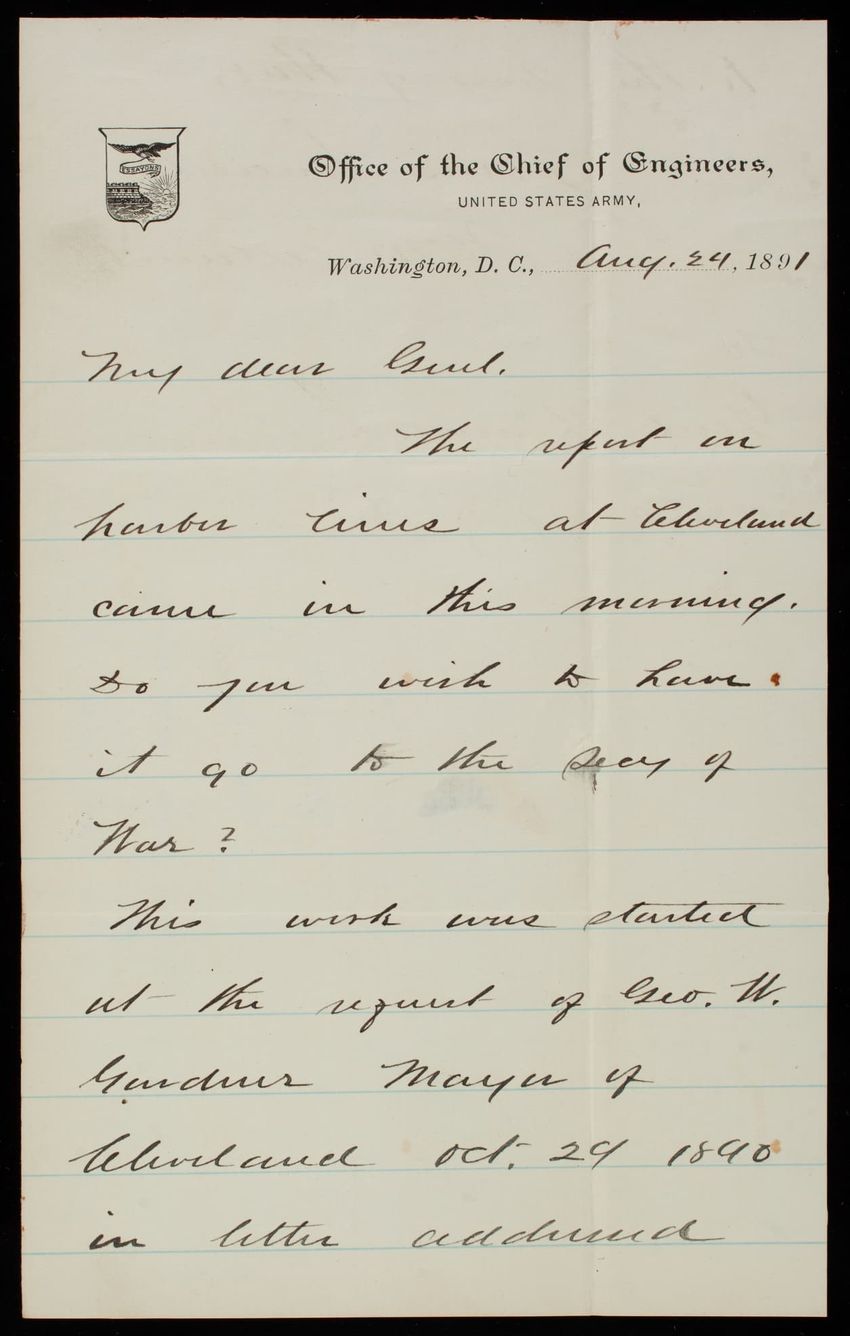 ESSAYONS
Office of the Chief of Engineers,
UNITED STATES ARMY,
Washington, D. C., Aug. 24, 1891
My dear Genl.
The report on
harbor lines at Cleveland
came in this morning.
Do you wish to have
it go to the Secy of
War?
This work was started
at the request of Geo. W.
Gardner Mayor of
Cleveland Oct. 29 1890
in letter addressed